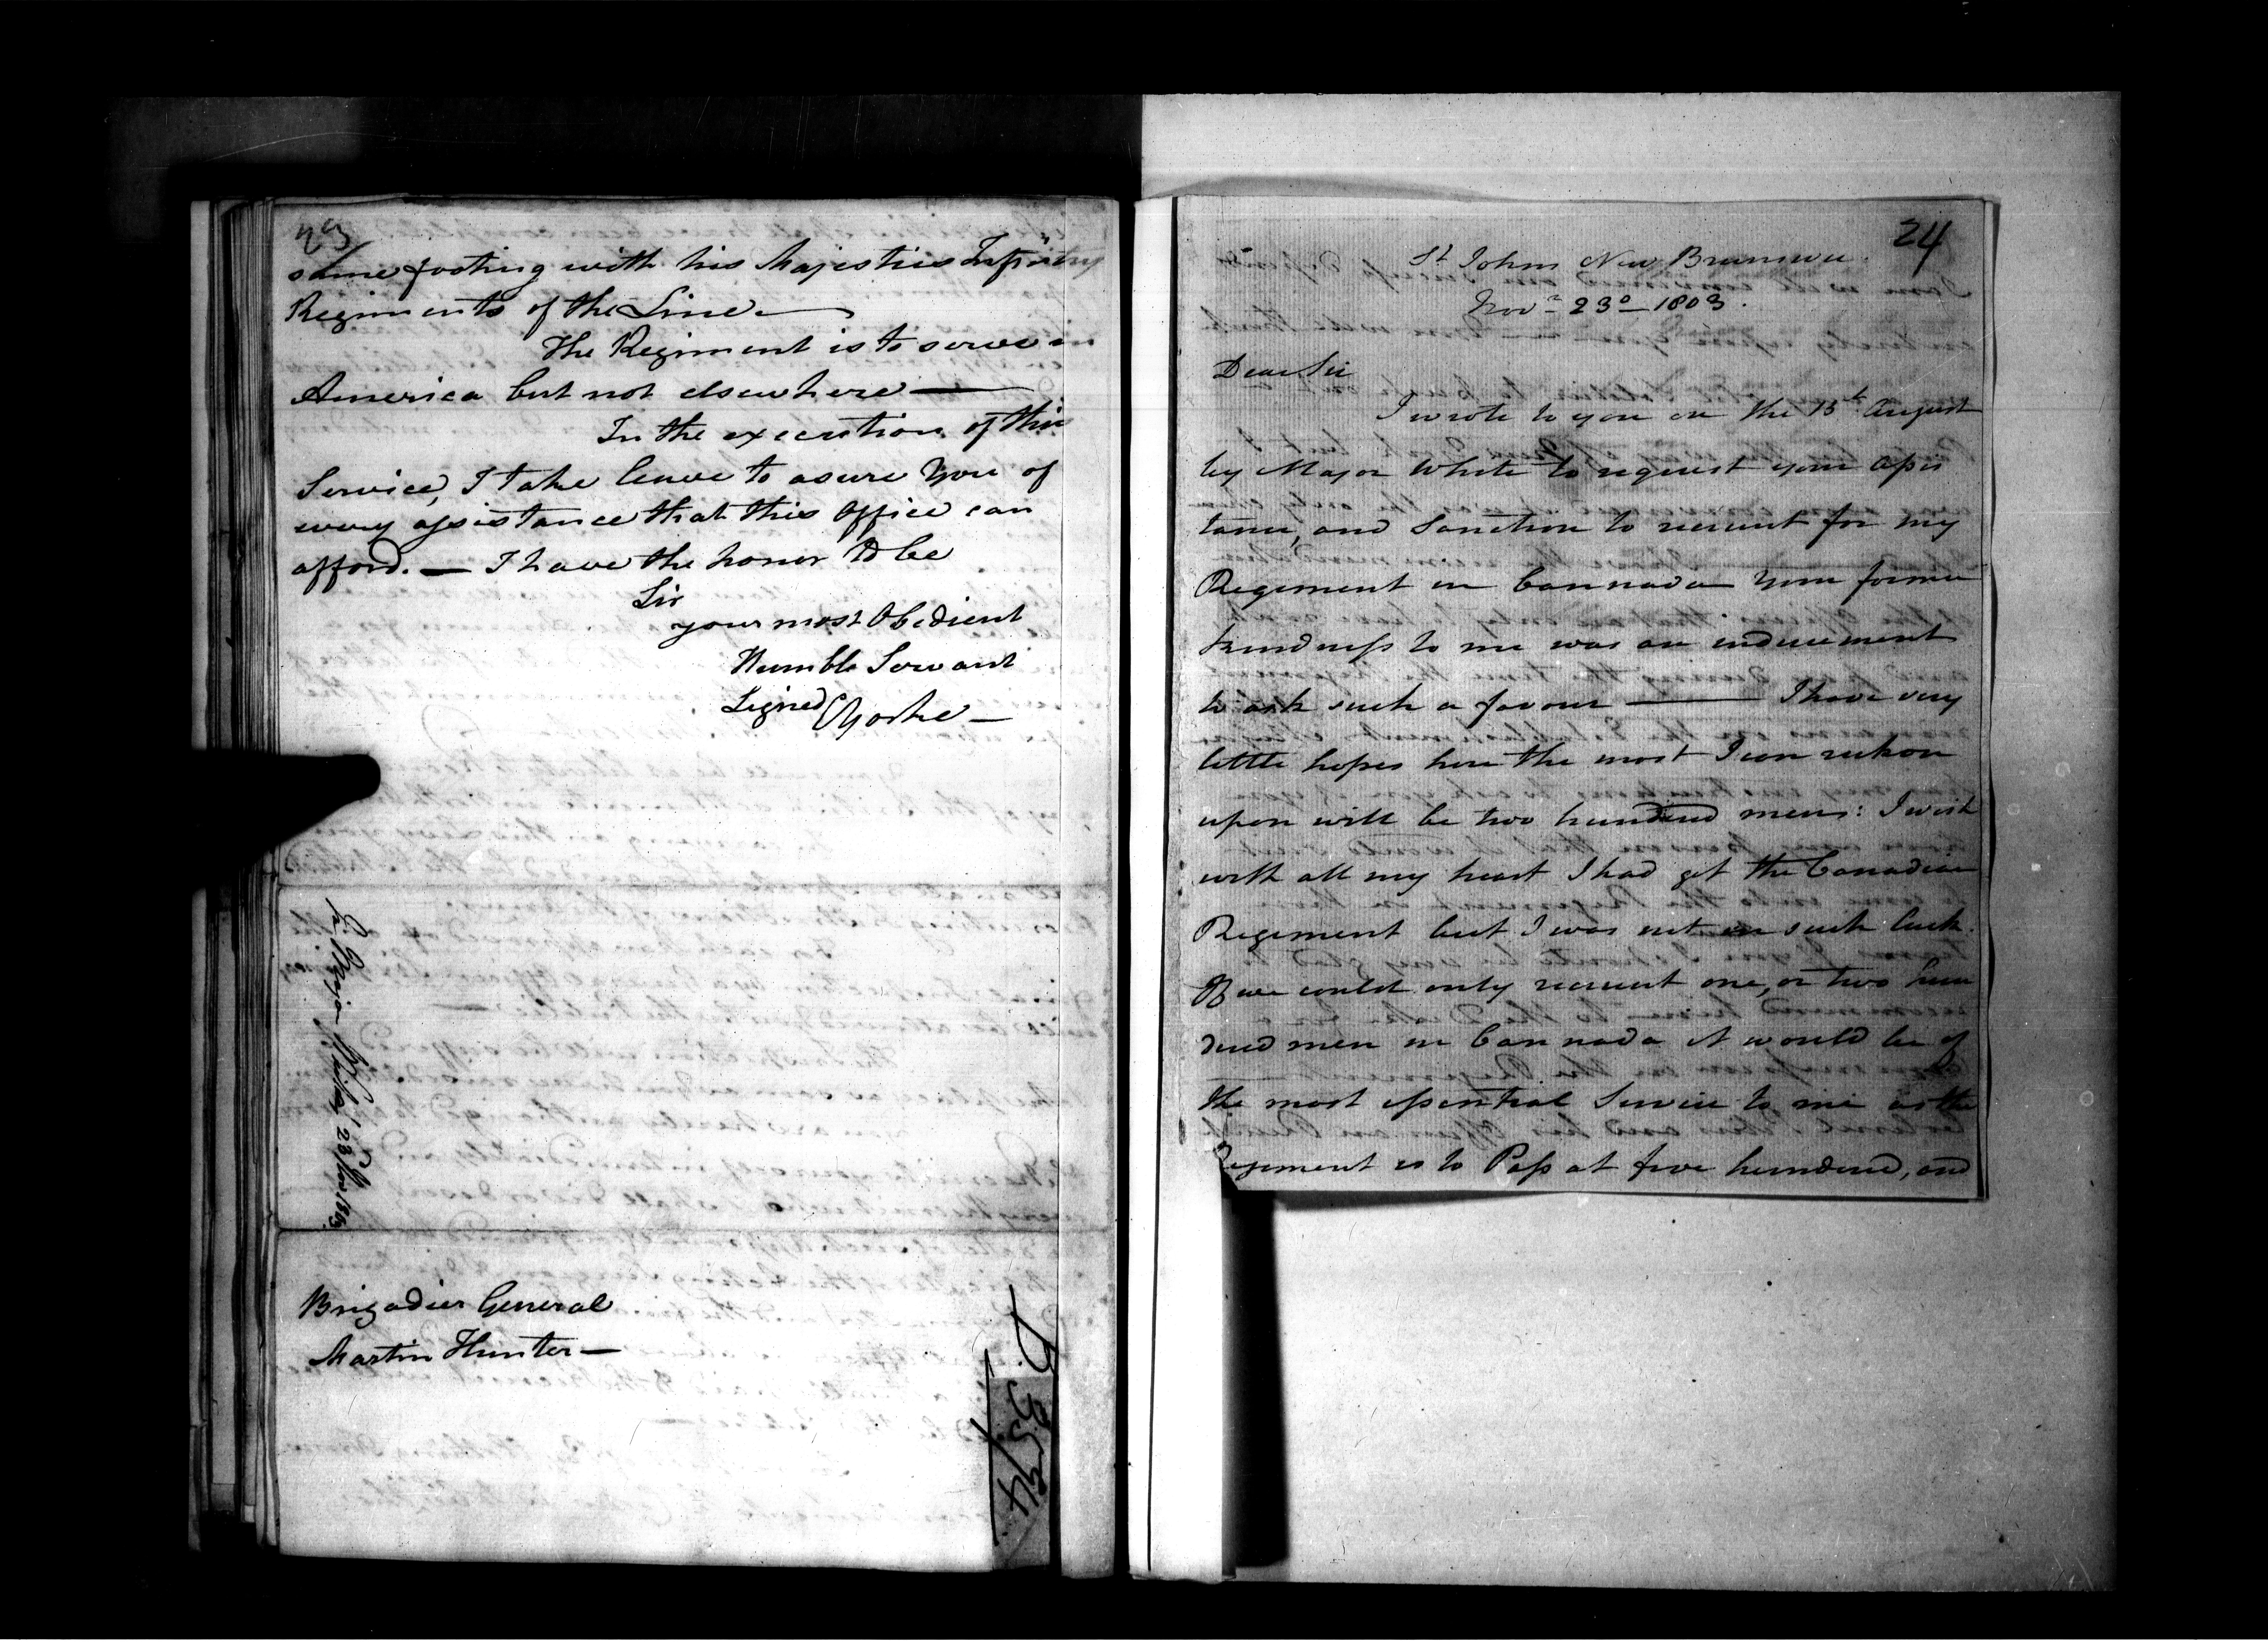 23
same footing with his Majesties Infantry
Regiments of the Line —
The Regiment is to serve in
America but not elsewhere —
In the execution of this
Service, I take leave to asure You of
every assistance that this Office can
afford. — I have the honor to be
Sir
your most Obedient
Humble Servant
Signed CYorke —
23 Nov 1803
Brigadier General
Martin Hunter —
24
St Johns New Brunswic
Novr 23d 1803.
Dear Sir
I wrote to you on the 15t August
by Major White to request your assis
tance, and Sanction to recruit for my
Regiment in Cannada Your former
kindness to me was an inducement
to ask such a favour — I have very
little hopes here the most I can reckon
upon will be two hundred men: I wish
with all my heart I had got the Canadian
Regiment but I was not in such luck.
If we could only recruit one, or two hun
dred men in Cannada it would be of
the most essential Service to me as the
Regiment is to Pass at five hundred, and